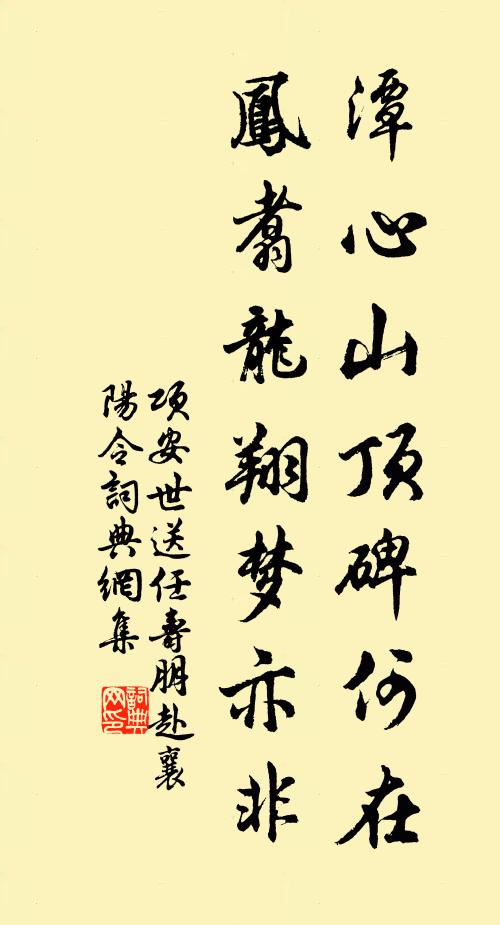 潭心山頂碑何在
鳳翥龍翔梦亦非
項安世送任壽朋赴襄
陽令詞典網集
詞典
网印